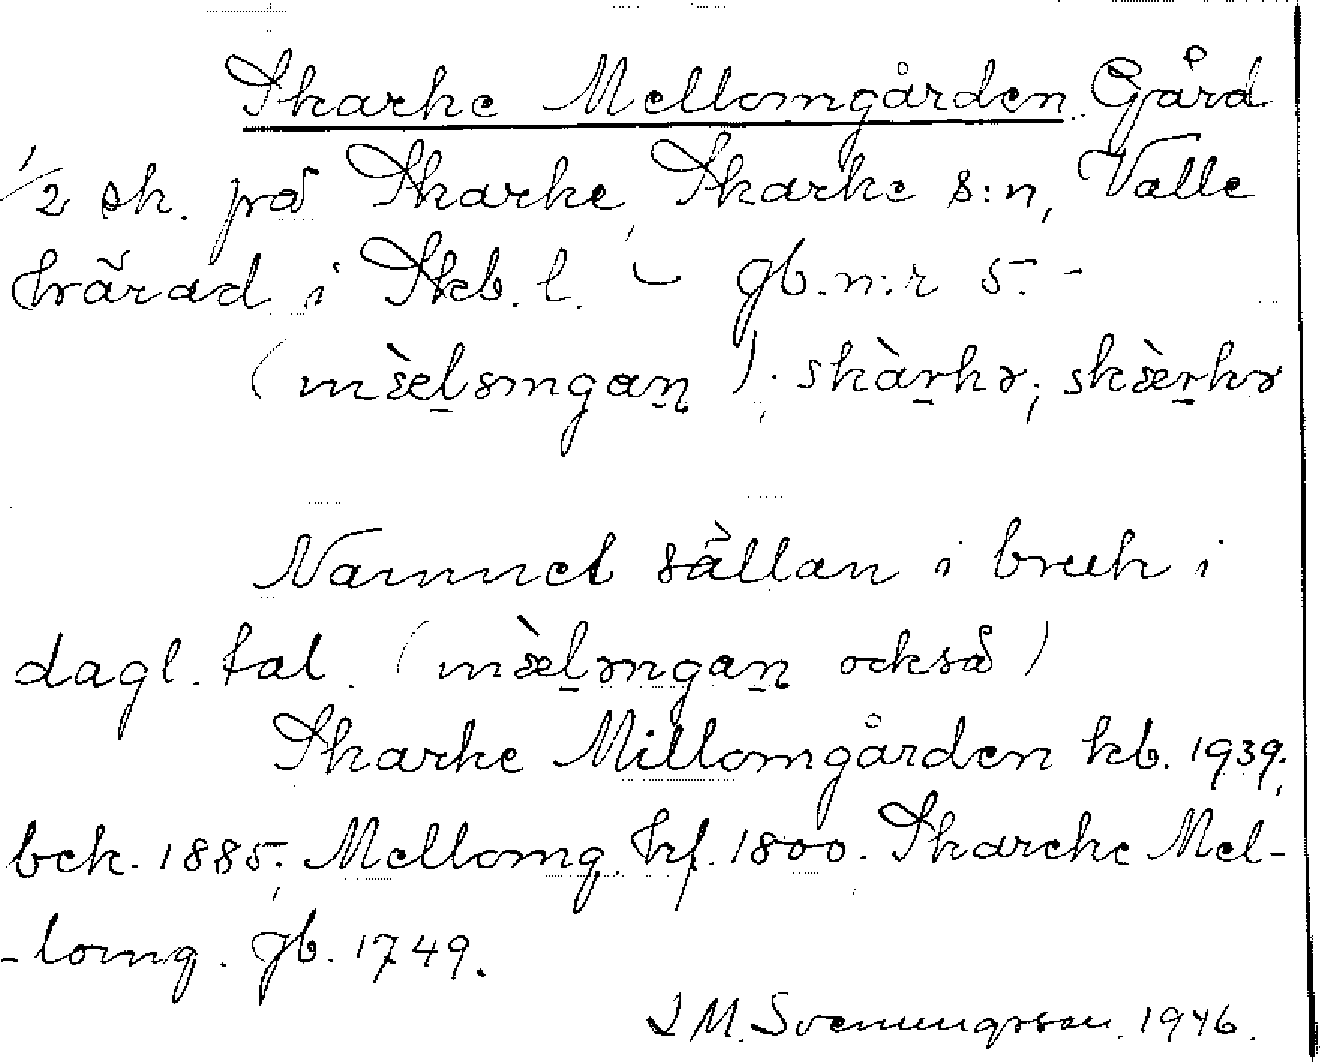 Skarke Mellomgården Gård
1/2 sk. på Skarke, Skarke s:n, Valle
härad i Skb. l. – gb. n:r 5. –
(mæ̀lomgaṉ); skàrkə; skæ̀rkə
Namnet sällan i bruk i
dagl. tal. (mæ̀ləmgaṉ också)
Skarke Millomgården kb. 1939;
bek. 1885; Mellomg. hf. 1800. Skarcke Mel-
-lomg. gb. 1749.
I M. Svenungsson. 1946.